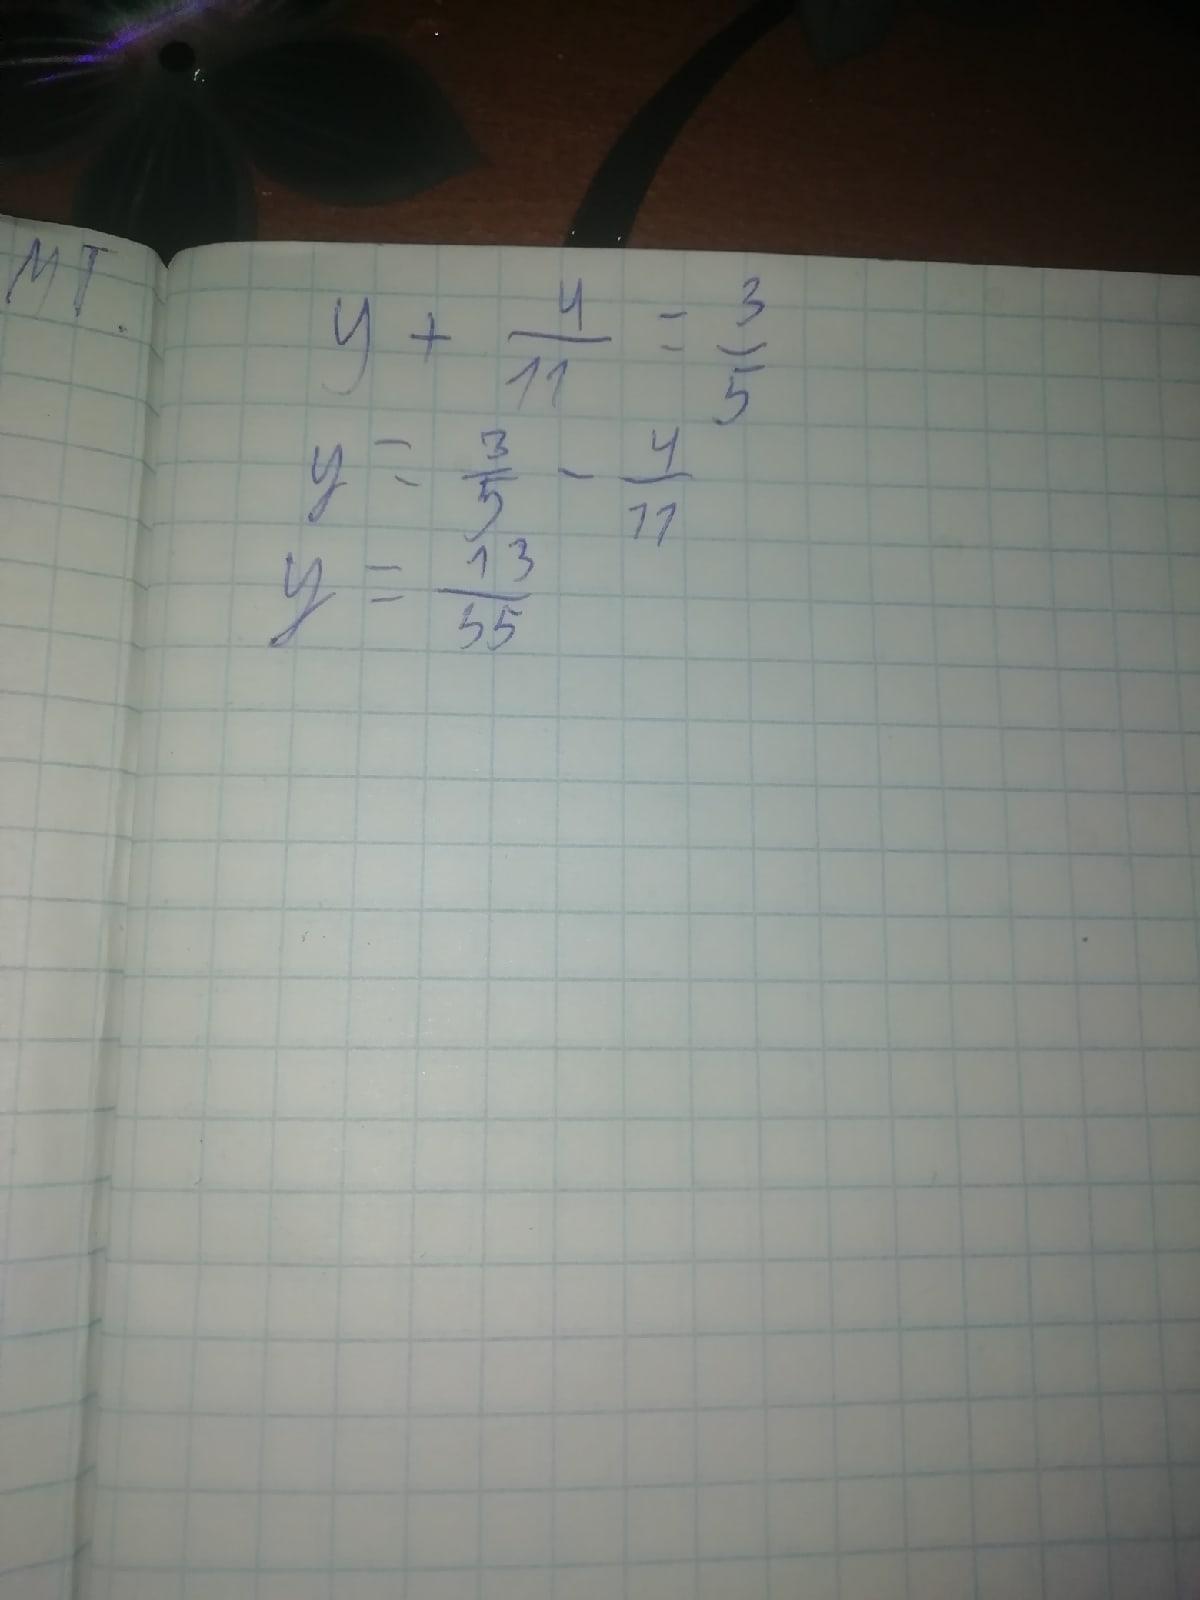 МТ.
y + 4/11 = 3/5
y = 3/5 - 4/11
y = 13/55